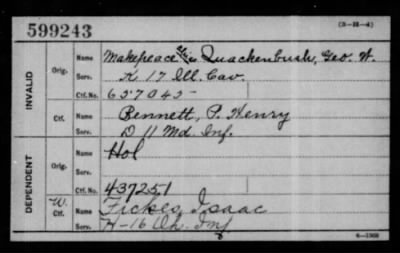 599243
(3—21—4)
INVALID
Orig.
Name Makepeace alias Quackenbush, Geo. W.
Serv. K 17 Ill. Cav.
Ctf. No. 657045-
Ctf.
Name Bennett, P. Henry
Serv. D 11 Md Inf.
DEPENDENT
Orig.
Name Hol
Serv.
Ctf. No. 437251
W.
Ctf.
Name Fickes, Isaac
Serv. H-16 Oh. Inf